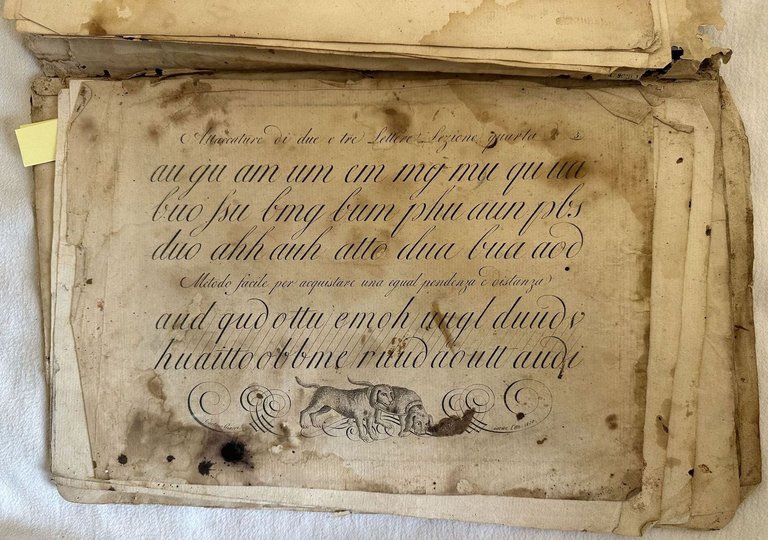 Attaccature di due e tre Lettere Lezione quarta
au gu am um em mg mu qu ua
buo ssu bmg bum phu aun pbs
duo ahh auh atto dua bua aod
Metodo facile per acquistare una egual pendenza e distanza
aud qudottu emoh ungl duudv
huaittoobbme ruudaoutt audi